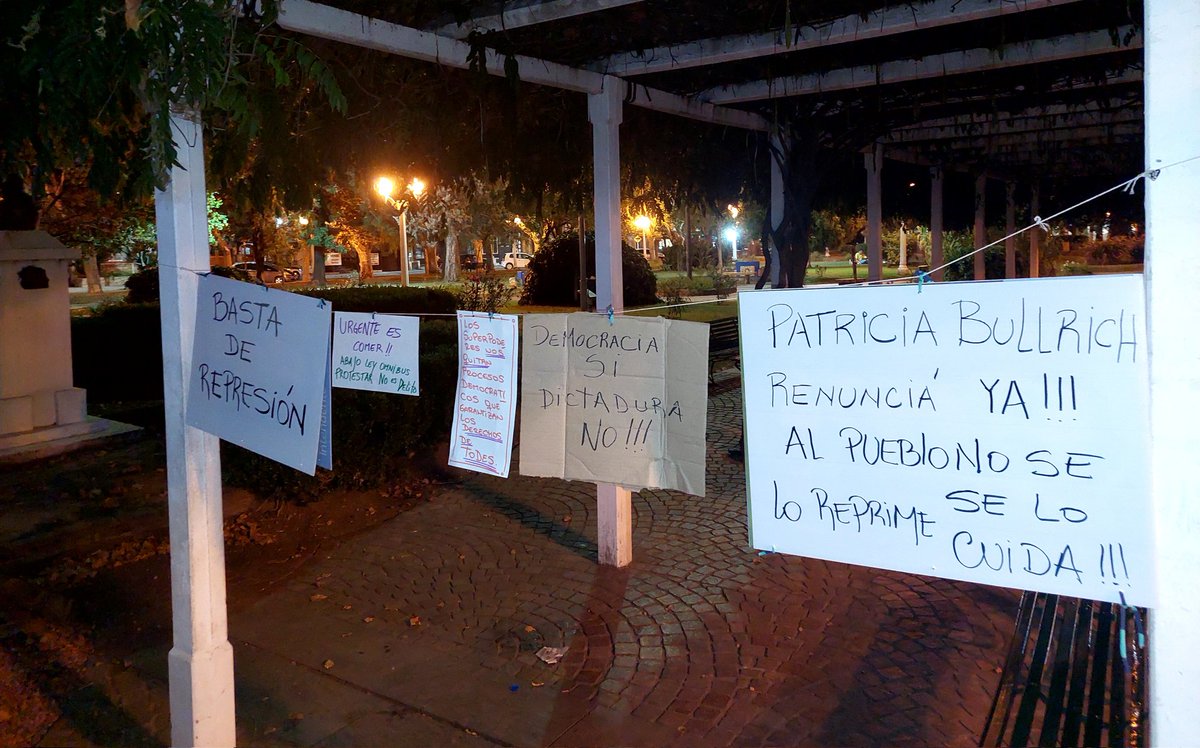 BASTA
DE
REPRESIÓN
URGENTE ES
COMER!!
ABAJO LEY OMNIBUS
PROTESTAR NO ES DELITO
LOS
SUPERPODE
RES NOS
QUITAN
PROCESOS
DEMOCRATI
COS QUE
GARANTIZAN
LOS
DERECHOS
DE
TODES.
DEMOCRACIA
SI
DICTADURA
NO!!!
PATRICIA BULLRICH
RENUNCIÁ YA!!!
AL PUEBLO NO SE
LO REPRIME SE LO
CUIDA!!!